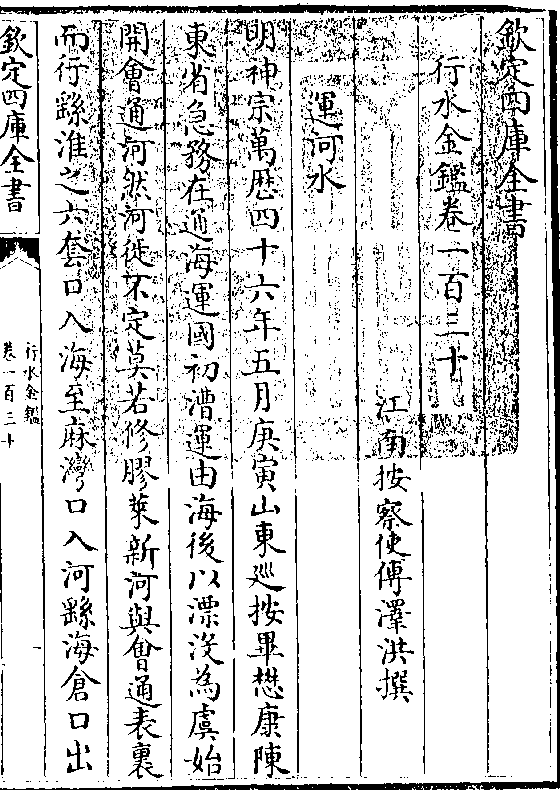 欽定四庫全書
行水金鑑卷一百三十
江南按察使傅澤洪撰
運河水
明神宗萬歴四十六年五月庚寅山東廵按畢懋康陳
東省急務在通海運國初漕運由海後以漂沒為虞始
開會通河然河徙不定莫若修膠萊新河與會通表裏
而行繇淮之六套口入海至麻灣口入河繇海倉口出
欽定四庫全書
行水金鑑
卷一百三十